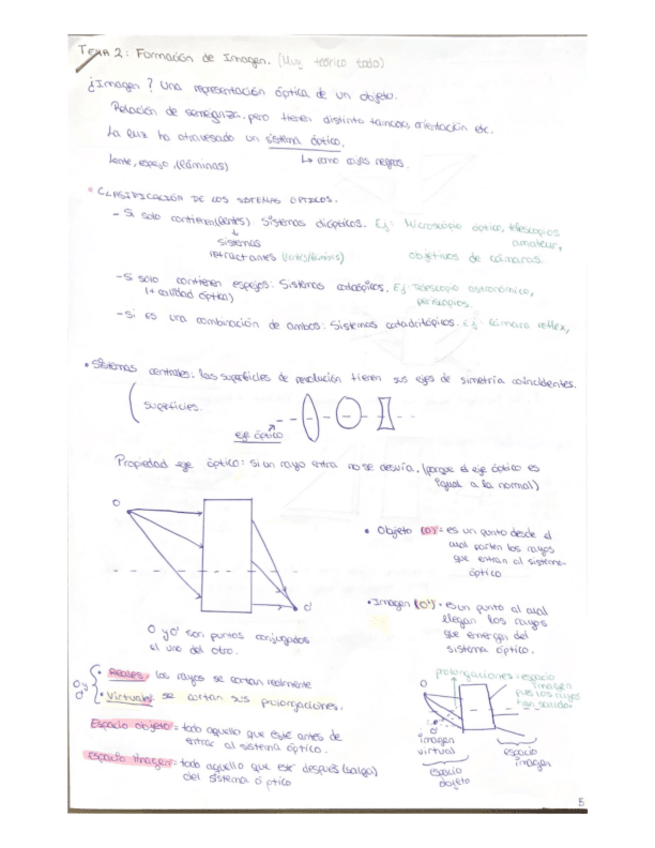 TEMA 2: Formación de Imagen. (Muy teórico todo)
¿Imagen? Una representación óptica de un objeto.
Relación de semejanza, pero tienen distinto tamaño, orientación etc.
La luz ha atravesado un sistema óptico.
lente, espejo, (láminas) ↳ como cajas negras.
• CLASIFICACIÓN DE LOS SISTEMAS OPTICOS.
- Si solo contienen (lentes) Sistemas dióptricos. Ej: Microscopio óptico, telescopios
amateur,
sistemas
refractantes objetivos de cámaras.
- Si solo contienen espejos: Sistemas catóptricos. Ej: Telescopio astronómico,
(+ calidad óptica) periscopios.
- Si es una combinación de ambos: Sistemas catadióptricos. Ej: Cámara reflex,
• Sistemas centrales: las superficies de revolución tienen sus ejes de simetría coincidentes.
superficies.
eje óptico
Propiedad eje óptico: si un rayo entra no se desvía. (porque el eje óptico es
igual a la normal)
O
O'
• Objeto (O) = es un punto desde el
cual parten los rayos
que entran al sistema
óptico
• Imagen (O') = es un punto al cual
llegan los rayos
que emergen del
sistema óptico.
O y O' son puntos conjugados
el uno del otro.
O y O'
• Reales: los rayos se cortan realmente
• Virtuales: se cortan sus prolongaciones.
Espacio objeto = todo aquello que esté antes de
entrar al sistema óptico.
Espacio Imagen = todo aquello que esté después (salga)
del sistema óptico
prolongaciones: espacio
imagen
pues los rayos
han salido.
O
O'
imagen
virtual
espacio
objeto
espacio
imagen
5